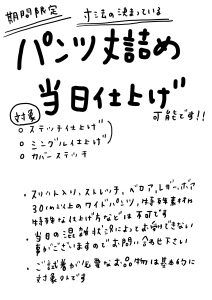 期間限定
寸法の決まっている
パンツ丈詰め
当日仕上げ
可能です!!
対象
○ ステッチ仕上げ
○ シングル仕上げ
○ カバーステッチ
・スリット入り、ストレッチ、ベロア、レザー、ボア
30cm以上のワイドパンツ、特殊素材
特殊な仕上げ方などは不可です
・当日の混雑状況によってお受けできない
事がございますのでお問い合わせ下さい
・ご試着が必要なお品物は基本的に
対象外です